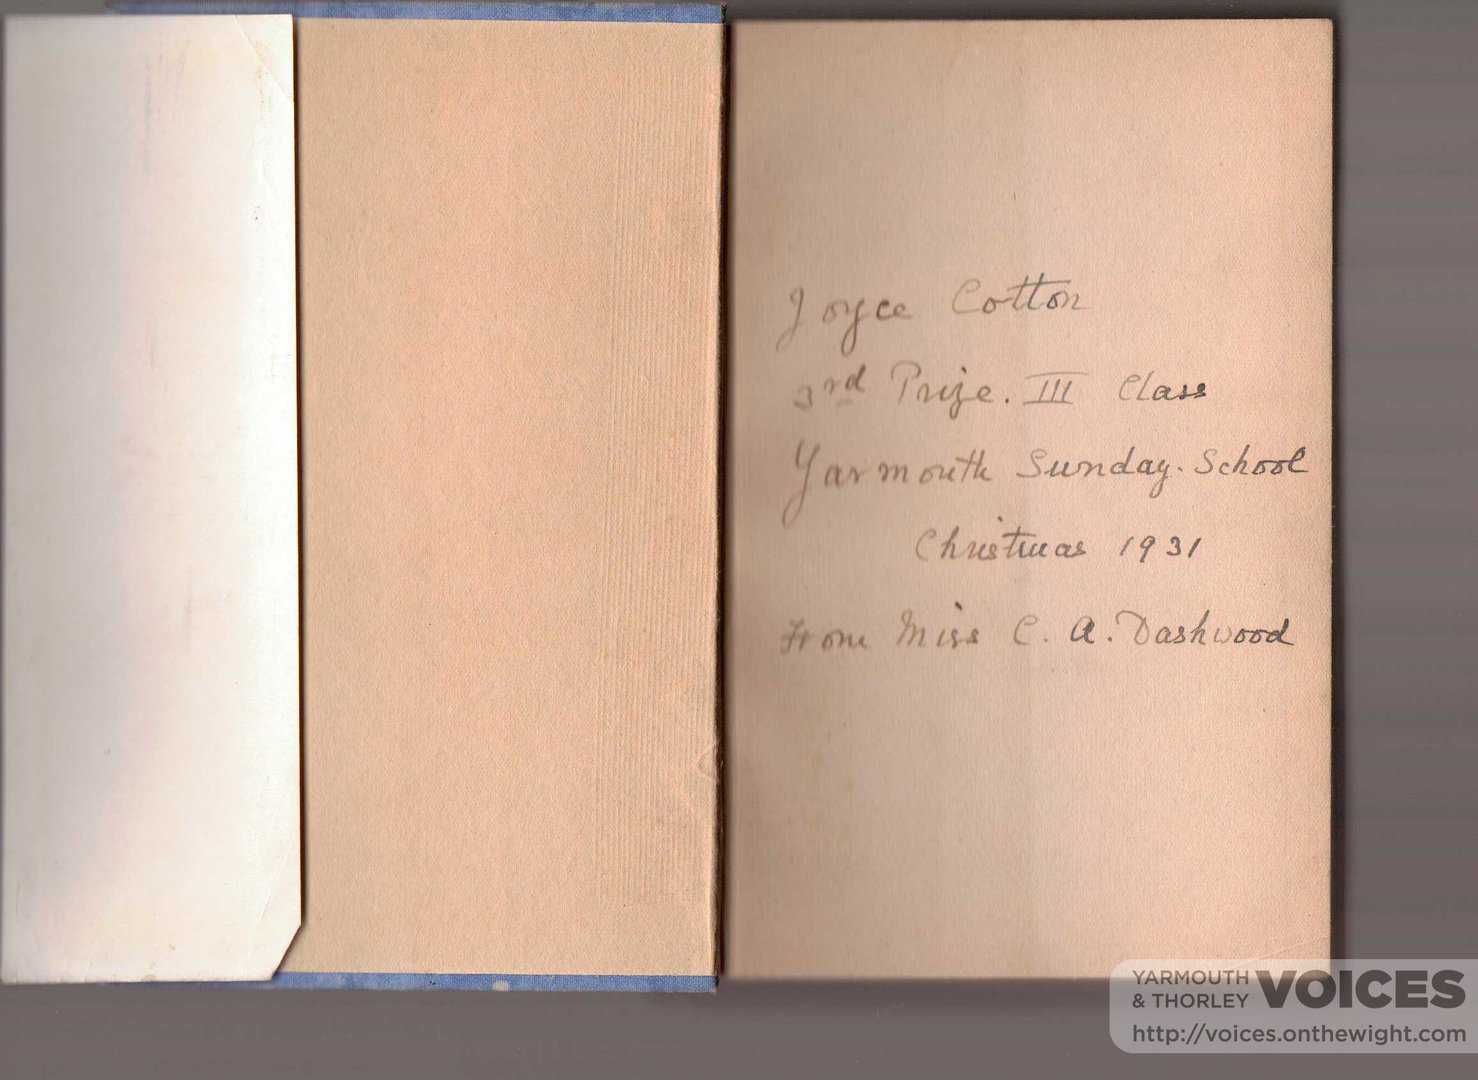 Joyce Cotton
3rd Prize. III Class
Yarmouth Sunday. School
Christmas 1931
From Miss C. A. Dashwood
YARMOUTH & THORLEY VOICES
http://voices.onthewight.com